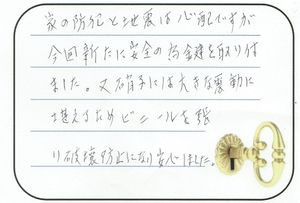 家の防犯と地震は心配ですが
今回新たに安全の為鍵を取り付
ました。又硝子には大きな震動に
堪えるためビニールを張
り破壊防止になり安心しました。